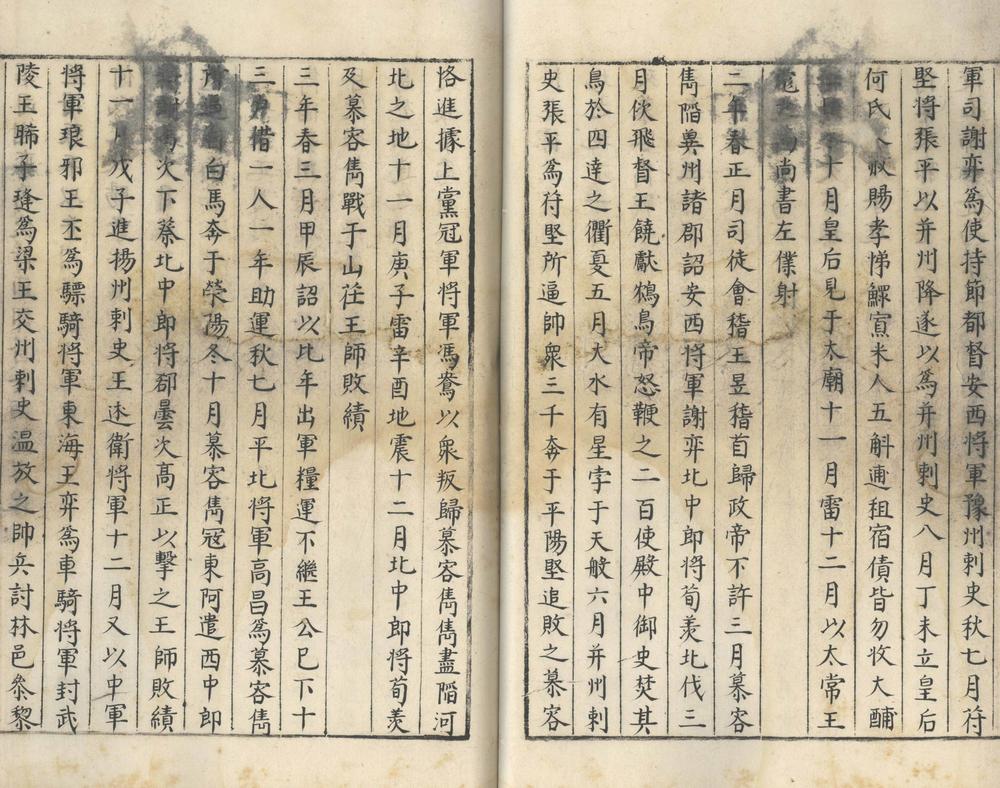 軍司謝弈爲使持節都督安西將軍豫州刺史秋七月苻
堅將張平以并州降遂以爲并州刺史八月丁未立皇后
何氏大赦賜孝悌鰥寡米人五斛逋租宿債皆勿收大酺
十月皇后見于太廟十一月雷十二月以太常王
尚書左僕射
二年春正月司徒會稽王昱稽首歸政帝不許三月慕容
儁陷冀州諸郡詔安西將軍謝弈北中郎將荀羨北伐三
月佽飛督王饒獻鴆鳥帝怒鞭之二百使殿中御史焚其
鳥於四達之衢夏五月大水有星孛于天船六月并州刺
史張平爲苻堅所逼帥衆三千奔于平陽堅追敗之慕容
恪進據上黨冠軍將軍馮鴦以衆叛歸慕容儁儁盡陷河
北之地十一月庚子雷辛酉地震十二月北中郎將荀羨
及慕容儁戰于山茌王師敗績
三年春三月甲辰詔以比年出軍糧運不繼王公已下十
三户借一人一年助運秋七月平北將軍高昌爲慕容儁
所逼自白馬奔于滎陽冬十月慕容儁冦東阿遣西中郎
將謝萬次下蔡北中郎將郗曇次高正以擊之王師敗績
十一月戊子進揚州刺史王述衛將軍十二月又以中軍
將軍琅邪王丕爲驃騎將軍東海王弈爲車騎將軍封武
陵王晞子逢爲梁王交州刺史温放之帥兵討林邑參黎